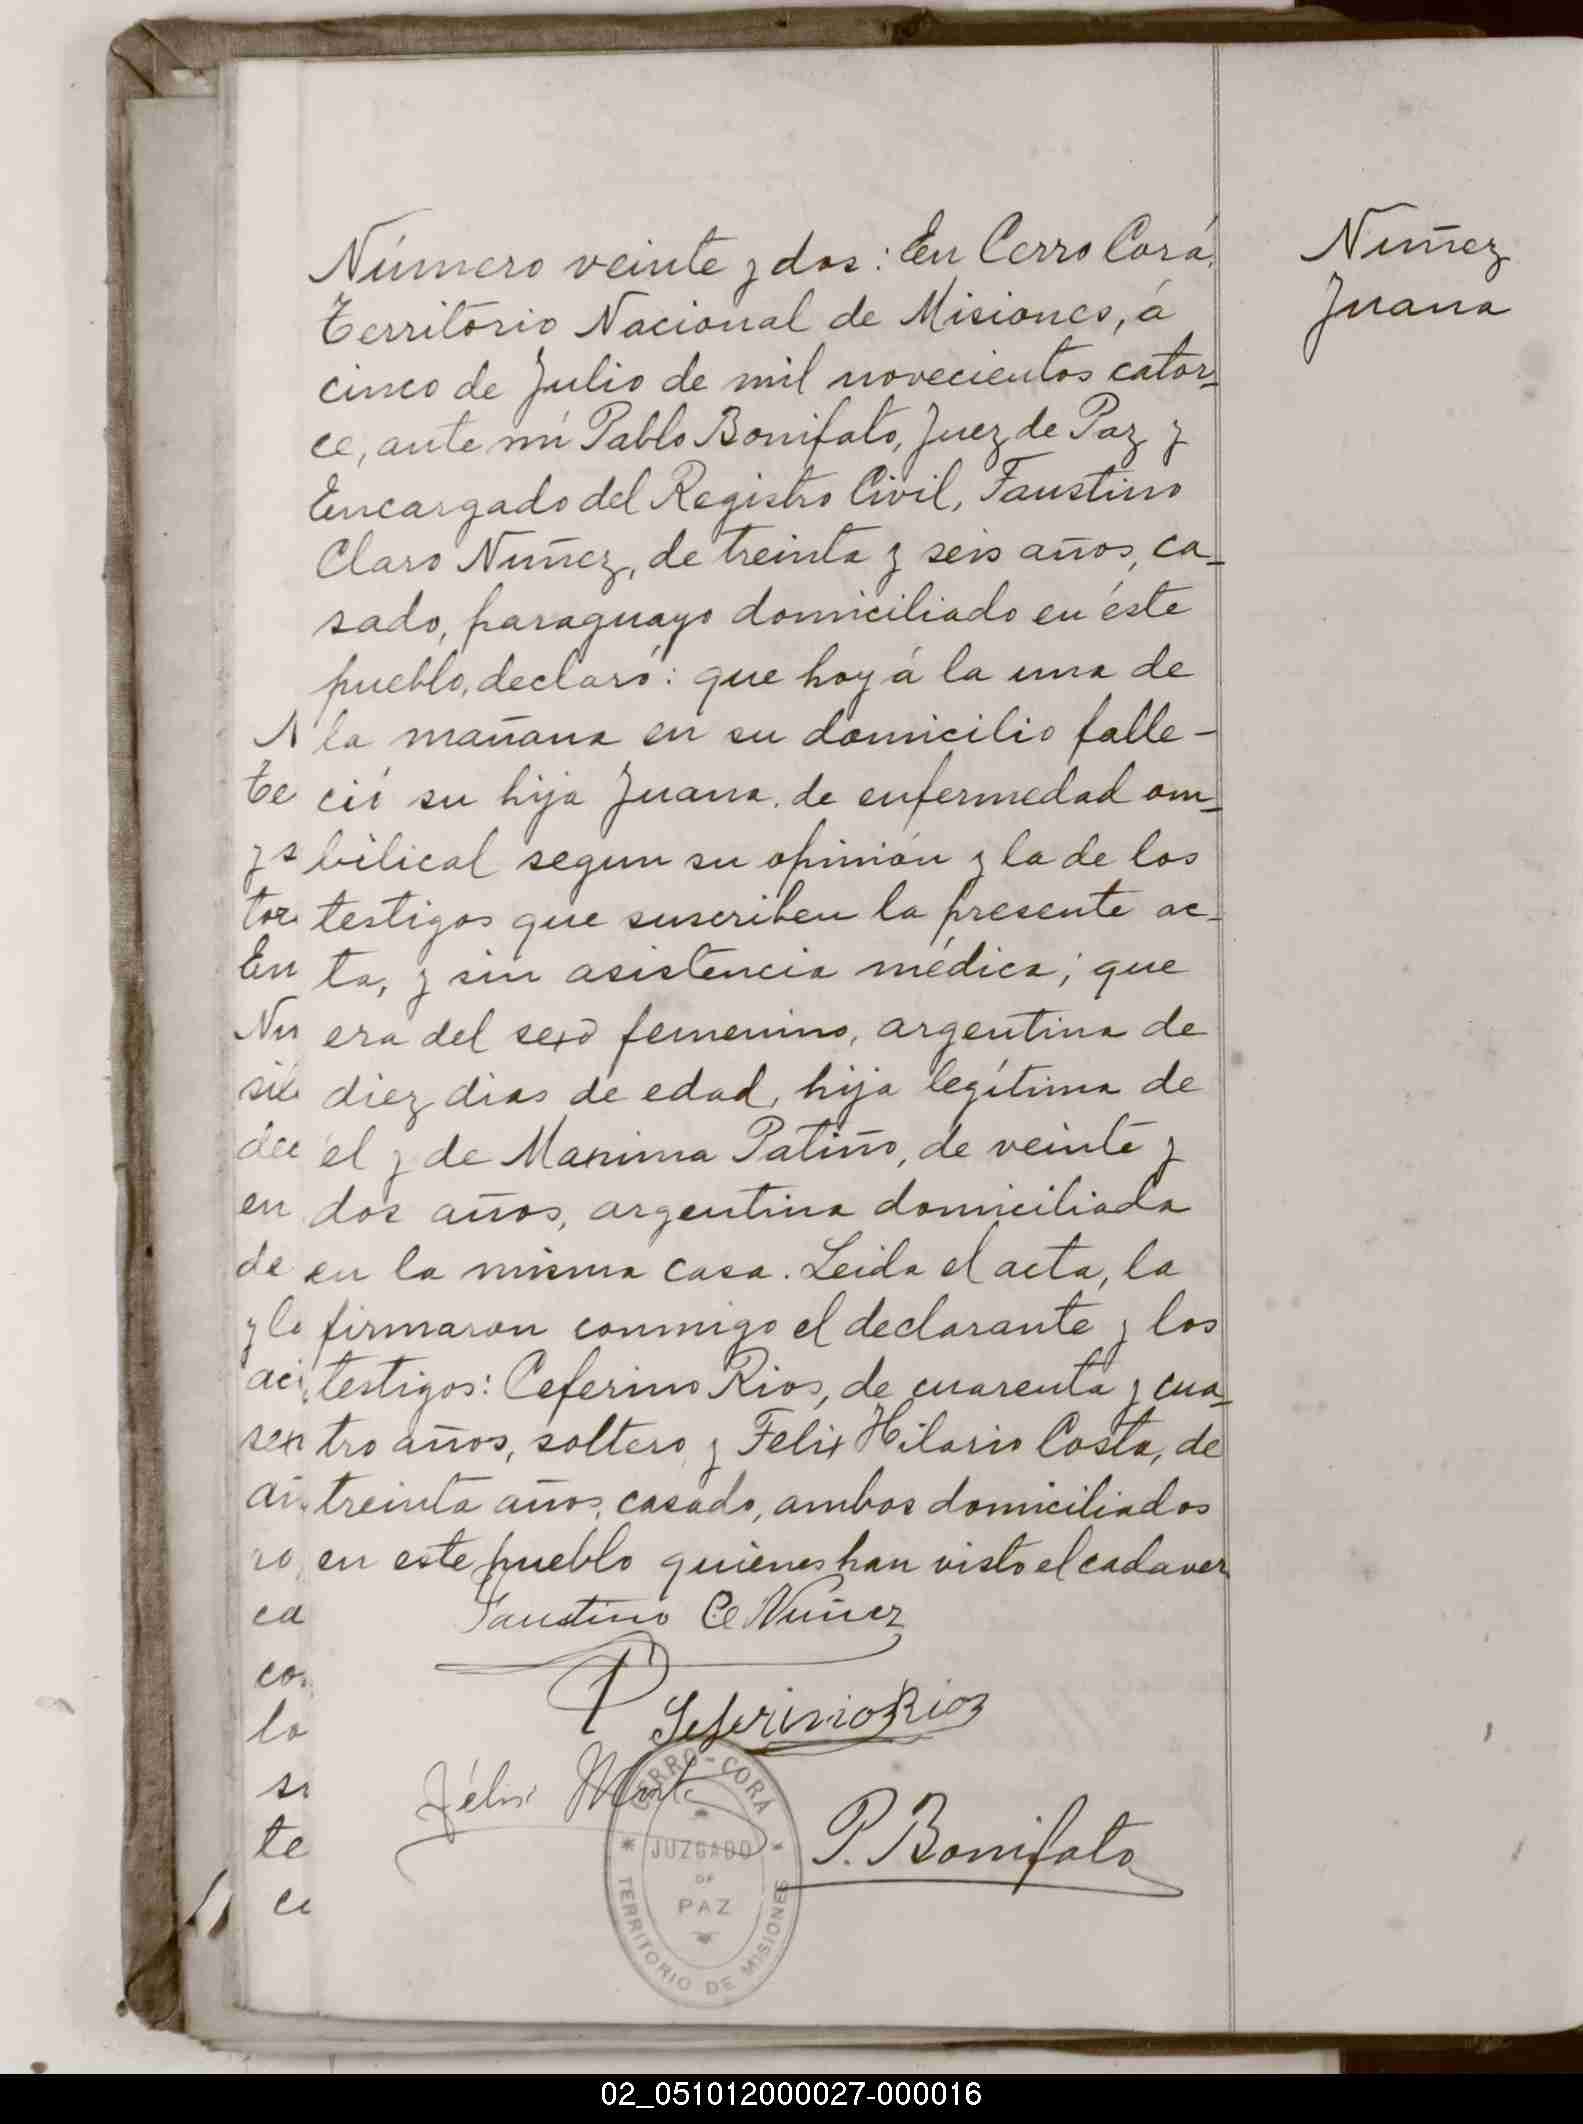 Número veinte y dos: En Cerro Corá,
Territorio Nacional de Misiones, á
cinco de Julio de mil novecientos cator-
ce, ante mí Pablo Bonifato, Juez de Paz y
Encargado del Registro Civil, Faustino
Claro Nuñez, de treinta y seis años, ca-
sado, paraguayo domiciliado en éste
pueblo, declaró: que hoy á la una de
la mañana en su domicilio falle-
ció su hija Juana, de enfermedad om-
bilical segun su opinión y la de los
testigos que suscriben la presente ac-
ta, y sin asistencia médica; que
era del sexo femenino, argentina de
diez dias de edad, hija legítima de
él y de Maxima Patiño, de veinte y
dos años, argentina domiciliada
en la misma casa. Leida el acta, la
firmaron conmigo el declarante y los
testigos: Ceferino Rios, de cuarenta y cua-
tro años, soltero y Felix Hilario Costa, de
treinta años, casado, ambos domiciliados
en este pueblo quienes han visto el cadaver
Nuñez
Juana
Te
tor
En
Nu
en
de
y lo
sex
ro
ca
co
lo
te
ce
Faustino C Nuñez
Seferino Rios
Félix
P. Bonifato
CERRO-CORA
JUZGADO
DE
PAZ
TERRITORIO DE MISIONES
02_051012000027-000016